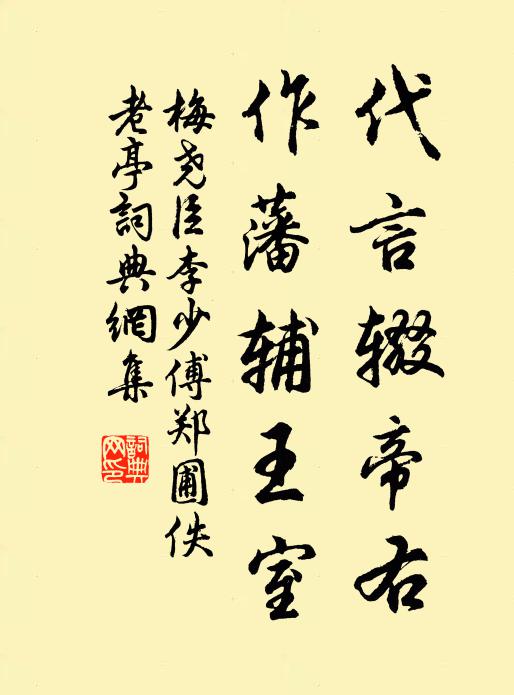 代言辍帝右
作藩辅王室
梅尧臣李少傅郑圃佚
老亭詞典網集
詞典网印